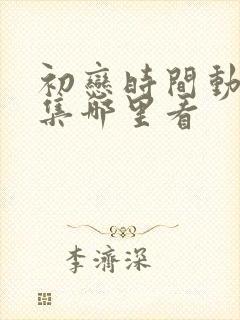 初戀時間動
集哪里看
李濟深